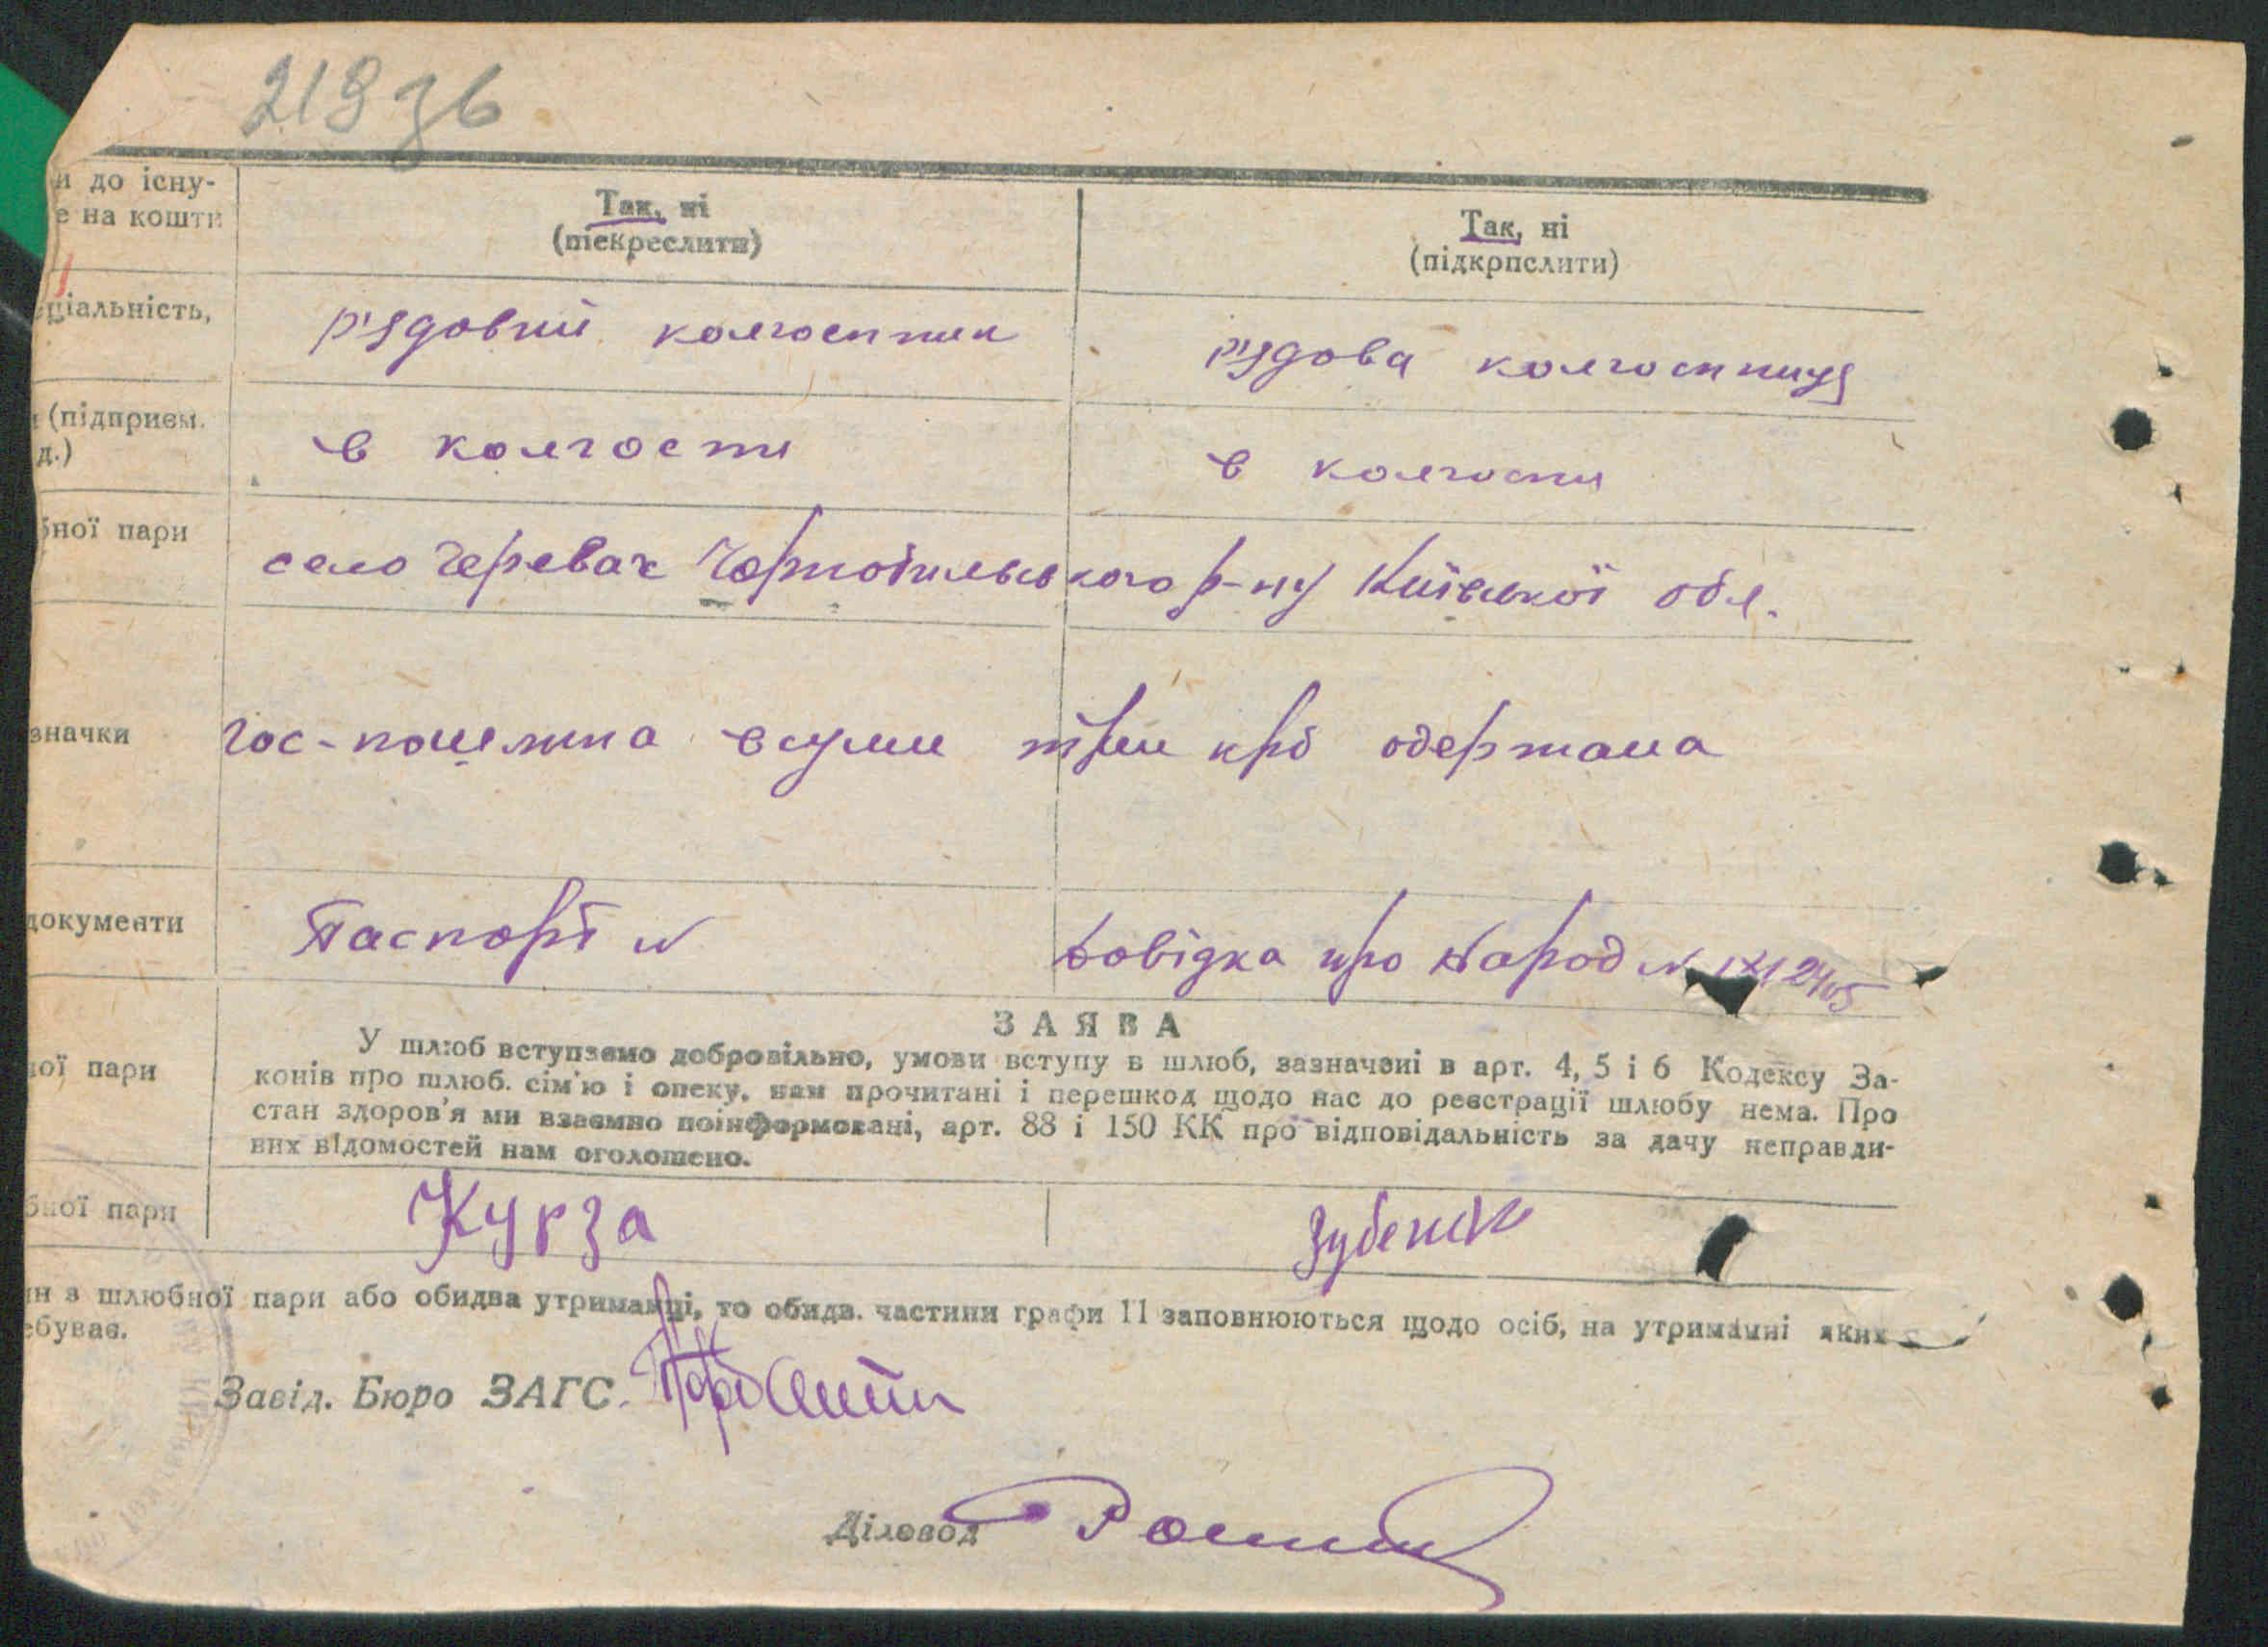 219 зв
и до існу-
е на кошти
Так, ні
(підкреслити)
Так, ні
(підкрпслити)
еціальність,
р'ядовий колгоспник
р'ядова колгоспниця
(підприєм.
д.)
в колгоспи
в колгоспи
бної пари
село Черевач Чорнобильського р-ну Київської обл.
значки
гос-пошлина в суми три крб одержана
документи
Паспорт №
Довідка про народ №
ЗАЯВА
У шлюб вступаємо добровільно, умови вступу в шлюб, зазначені в арт. 4, 5 і 6 Кодексу За-
ної пари
конів про шлюб. сім'ю і опеку, нам прочитані і перешкод щодо нас до реєстрації шлюбу нема. Про
стан здоров'я ми взаємно поінформовані, арт. 88 і 150 КК про відповідальність за дачу неправди-
вих відомостей нам оголошено.
бної пари
Курза
Зубенок
ин з шлюбної пари або обидва утриманці, то обидв. частини графи 11 заповнюються щодо осіб, на утриманні яких
ебуває.
Завід. Бюро ЗАГС.
Діловод